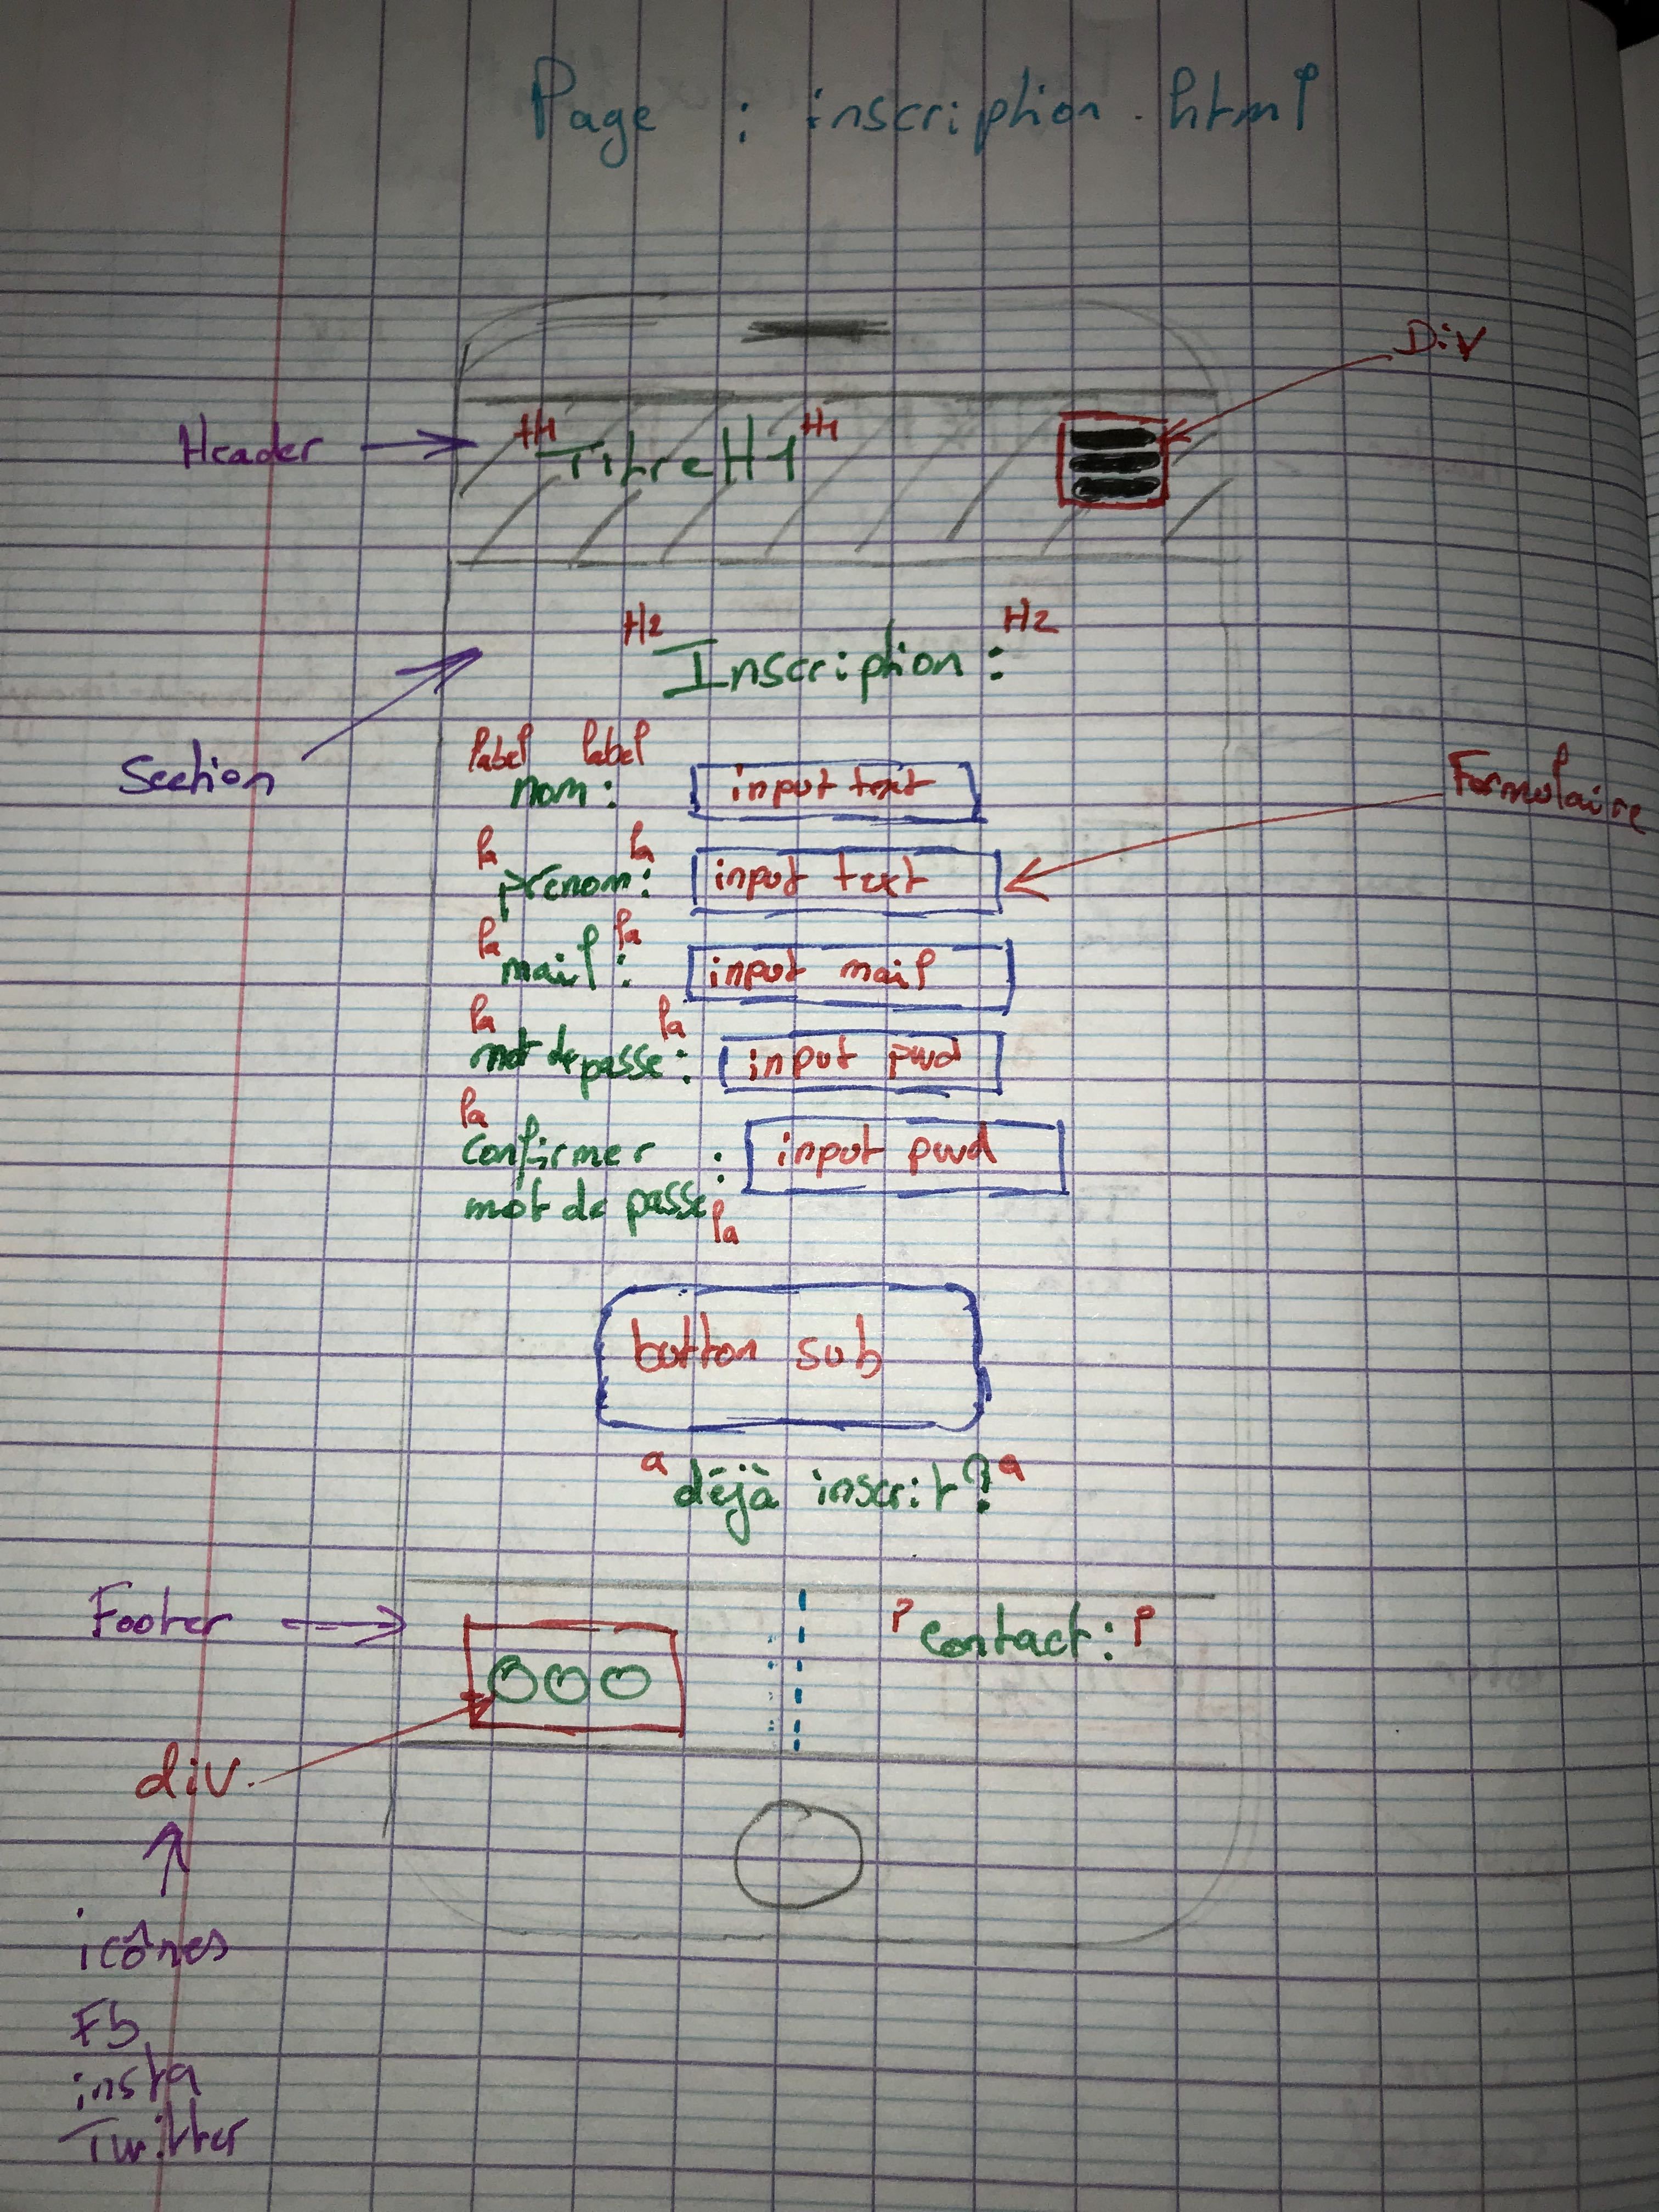 Page : inscription.html
Div
Header
H1 Titre H1 H1
H2 Inscription : H2
Section
label label
nom : input text
Formulaire
la la
prénom : input text
la la
mail : input mail
la la
mot de passe : input pwd
la
confirmer : input pwd
mot de passe la
button sub
a déjà inscrit ? a
Footer
P contact : P
div
icônes
Fb
insta
Twitter